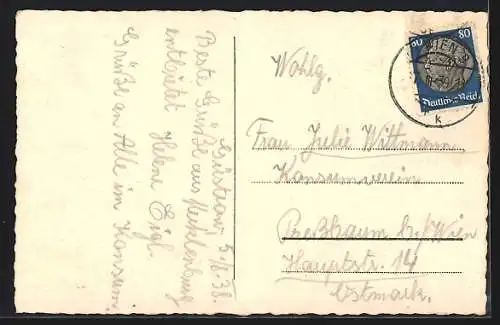 Güstrow 5/8. 38.
Beste Grüße aus Mecklenburg
entbietet
Helene Eigl.
Grüße an Alle im Konsum.
Wohlg.
Frau Julie Wittmann
Konsumverein
Preßbaum b/Wien
Hauptstr. 14
Ostmark.
WIEN
k
80
Deutsches Reich